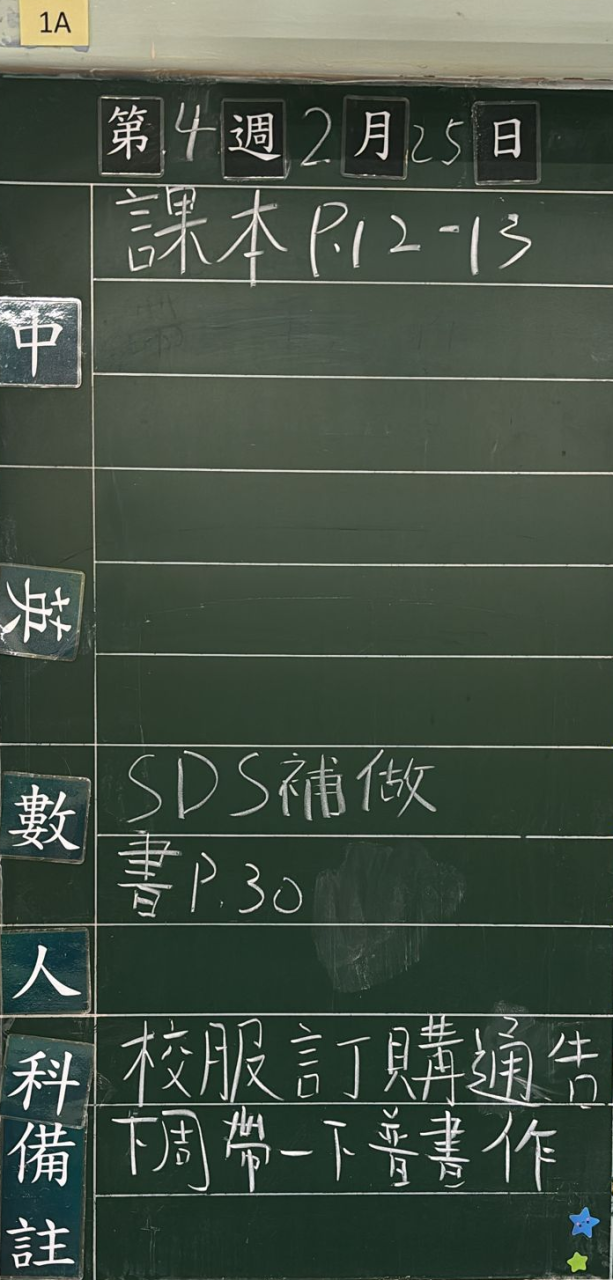 1A
第4週2月25日
課本 P.12-13
中
英
SDS補做
數
書P.30
人
校服訂購通告
科
下周帶一下普書作
備
註